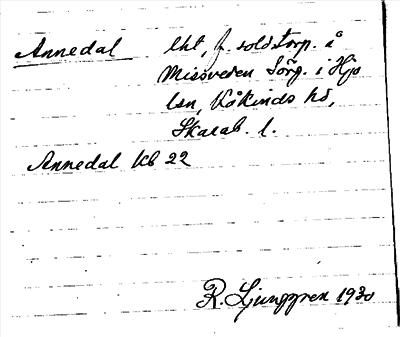 Annedal lht, f. soldtorp. å
Missveden Sörg. i Hjo
lsn, Kåkinds hd,
Skarab. l.
Annedal Kb 22
R. Ljunggren 1930